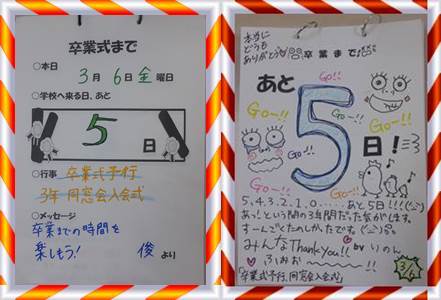 卒業式まで
○本日
3月 6日 金曜日
○学校へ来る日、あと
5 日
○行事 卒業式予行
3年 同窓会入会式
○メッセージ
卒業までの時間を
楽しもう!
俊 より
本当に
どうも
ありがとう
卒業まで!
あと
5
日!
Go-!!
Go-!!
Go-!!
Go-!!
Go-!!
Go-!!
5,4,3,2,1,0......あと5日!!!(;_;)
あっ!という間の3年間だった気がします。
すーんごくたのしかったです。
みんなThank you!! by りのん
「卒業式予行、同窓会入会式」
3/6